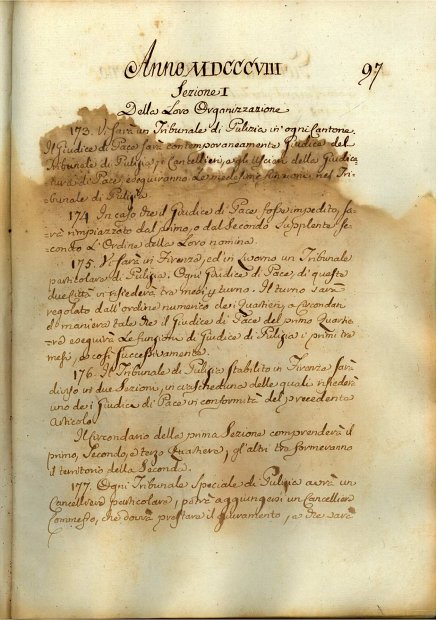 Anno MDCCCVIII
97
Sezione I
Della Loro Organizzazione
173. Vi sarà un Tribunale di Pulizia in ogni Cantone.
Il Giudice di Pace sarà contemporaneamente Giudice del
Tribunale di Pulizia, i Cancellieri, e gli Uscieri della Giudica
tura di Pace eseguiranno Le medesime funzioni nel Tri
bunale di Pulizia.
174. In caso che il Giudice di Pace fosse impedito, sa
rà rimpiazzato dal primo, o dal Secondo Supplente se
condo L'Ordine della Loro nomina.
175. Vi sarà in Firenze, ed in Livorno un Tribunale
particolare di Pulizia. Ogni Giudice di Pace, di queste
due Città vi risiederà tre mesi per turno. Il turno sarà
regolato dall'ordine numerico dei Quartieri, e Circondari
di maniera tale che il Giudice di Pace del primo Quartie
re eseguirà Le funzioni di Giudice di Pulizia i primi tre
mesi, e così successivamente.
176. Il Tribunale di Pulizia stabilito in Firenze sarà
diviso in due Sezioni, in ciascheduna delle quali risiederà
uno dei Giudici di Pace in conformità del precedente
articolo.
Il Circondario della prima Sezione comprenderà il
primo, Secondo, e terzo Quartiere, gl'altri tre formeranno
il territorio della Seconda.
177. Ogni Tribunale Speciale di Pulizia avrà un
Cancelliere particolare, potrà aggiungersi un Cancelliere
Commesso, che dovrà prestare il giuramento, e che sarà